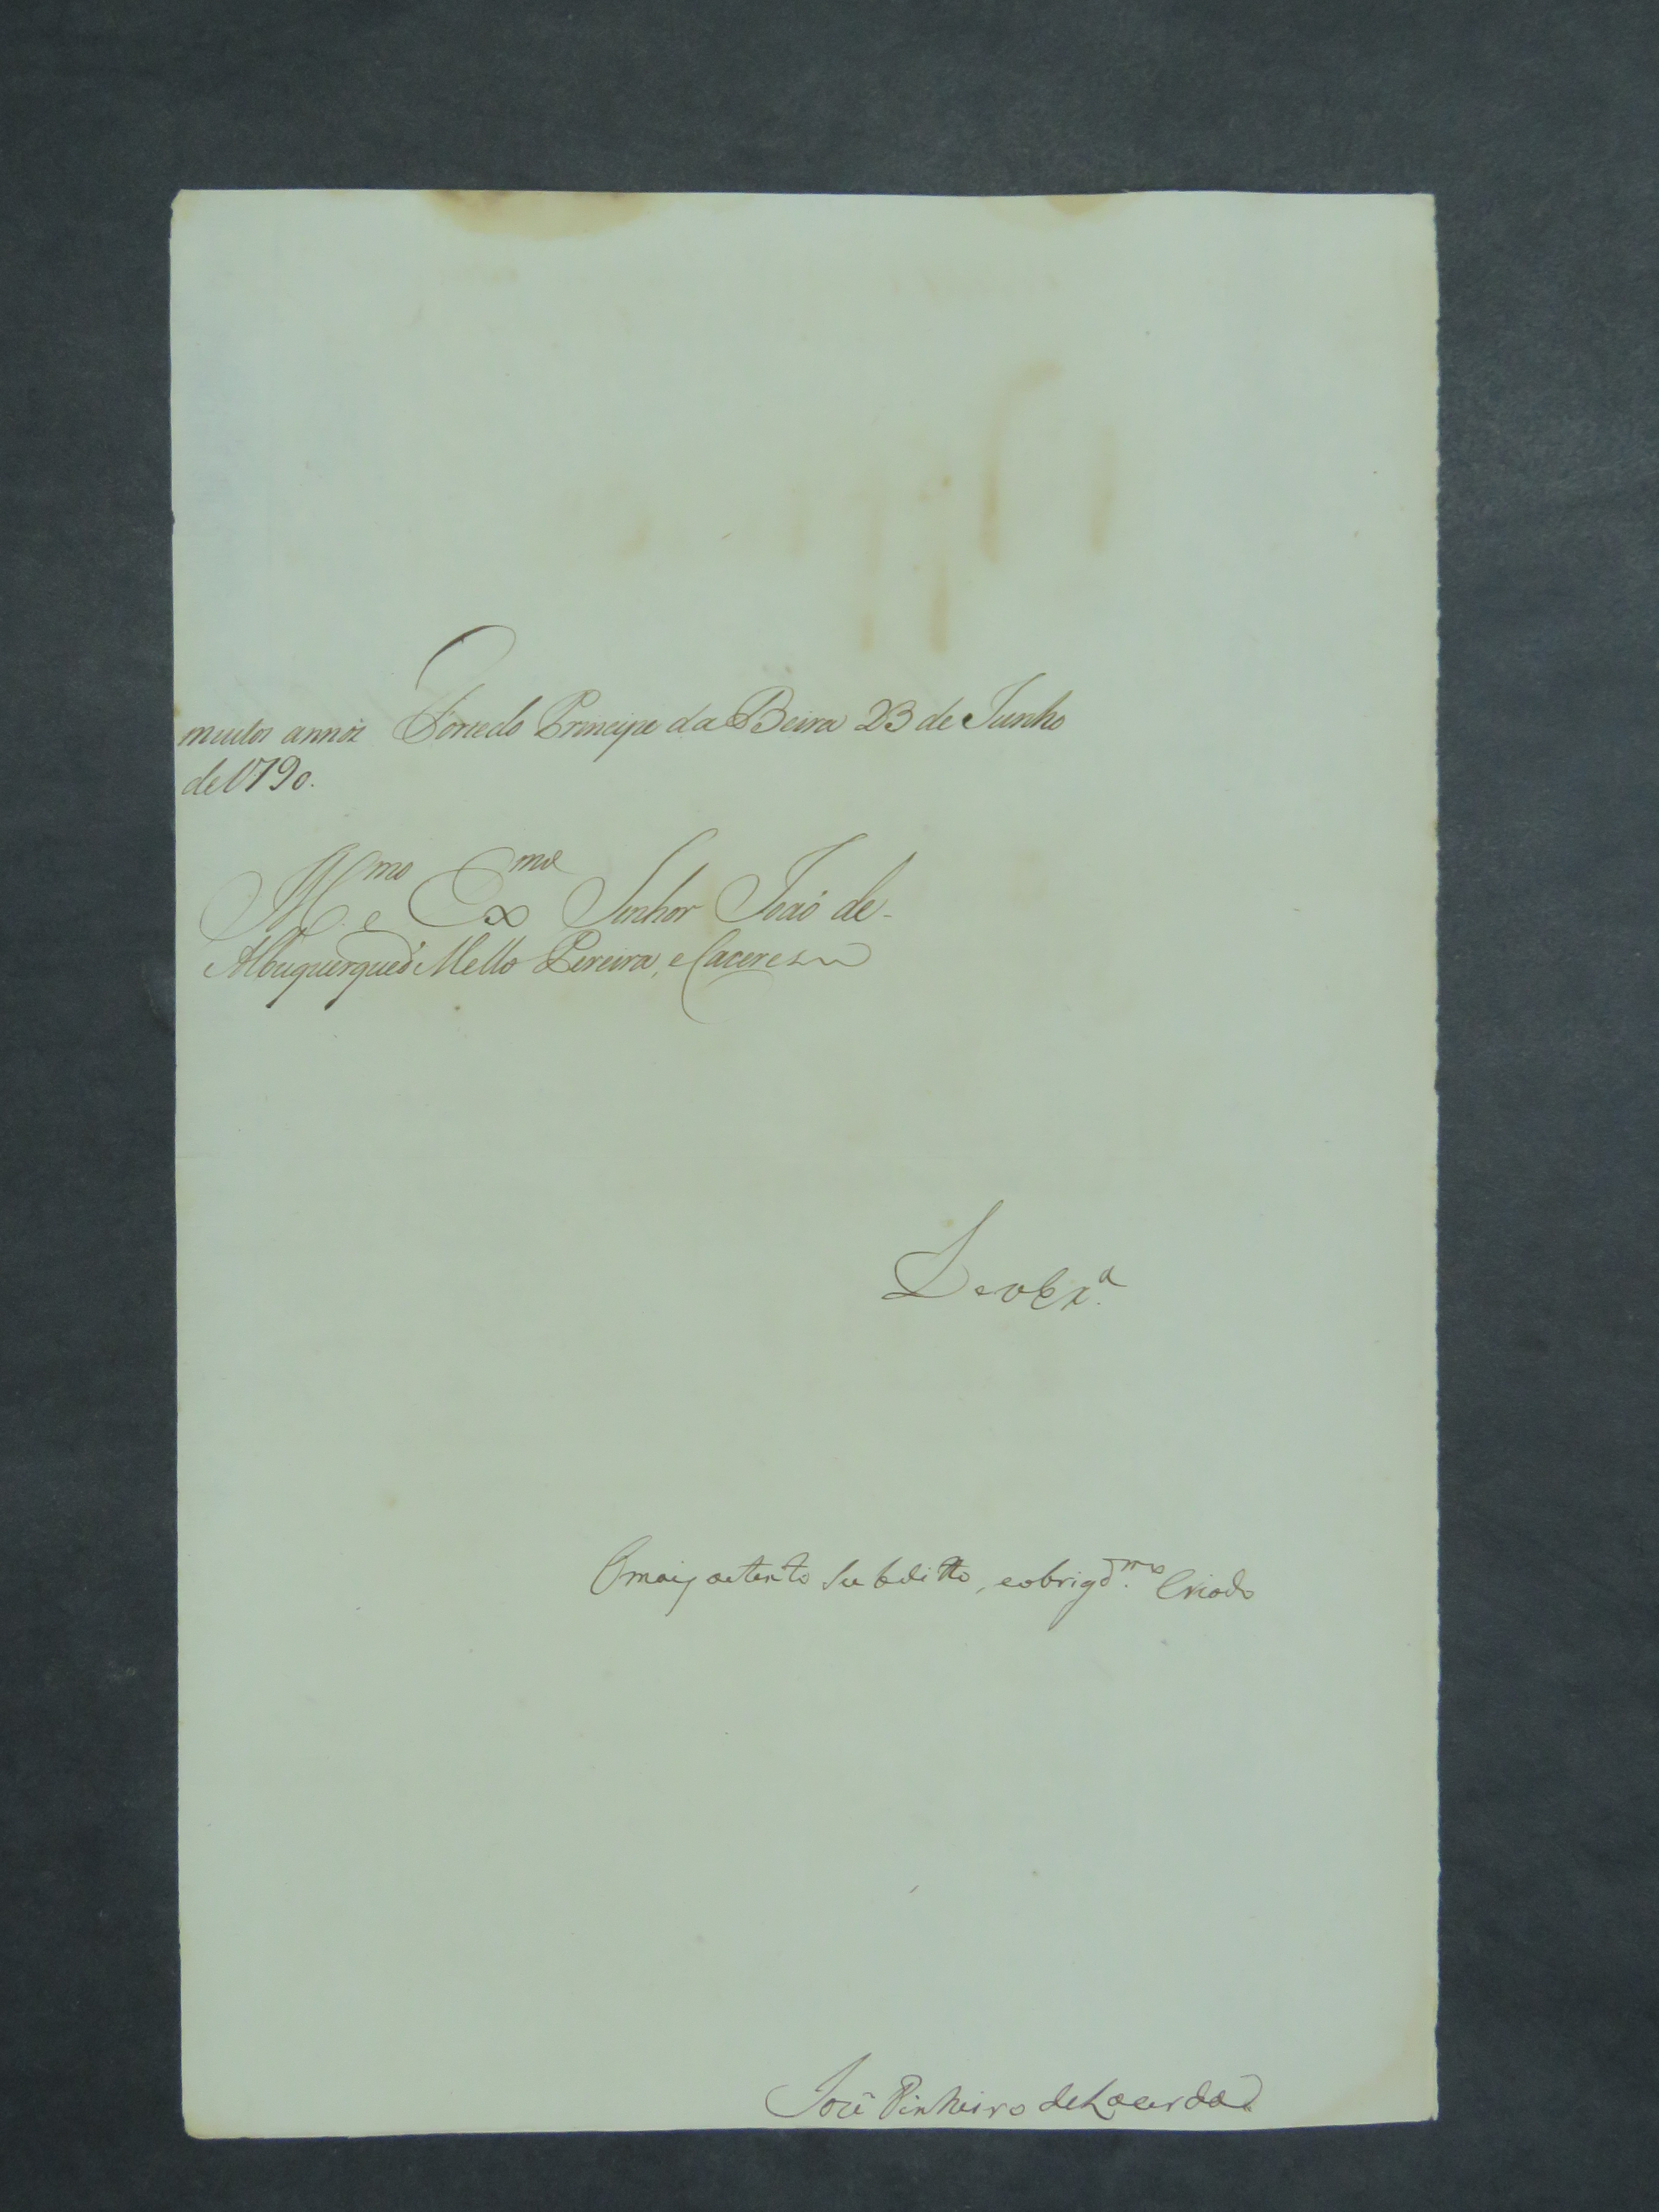 muitos annos Forte do Principe da Beira 23 de Junho
de 1790.
Ill.mo e Ex.mo Senhor João de
Albuquerque d' Mello Pereira, e Caceres
De V Ex.a
O mais atento Subditto, e obrigd.mo Criado
José Pinheiro de Lacerda